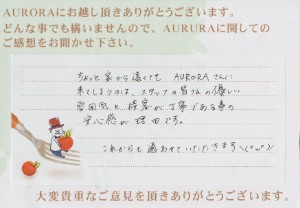 AURORAにお越し頂きありがとうございます。
どんな事でも構いませんので、AURURAに関しての
ご感想をお聞かせ下さい。
ちょっと家から遠くても AURORAさんに
来てしまうのは、スタッフの皆さんの優しい
雰囲気と 接客が丁寧である事の
安心感が理由です。
これからも通わせていただきます＼(^o^)/
大変貴重なご意見を頂きありがとうございます。